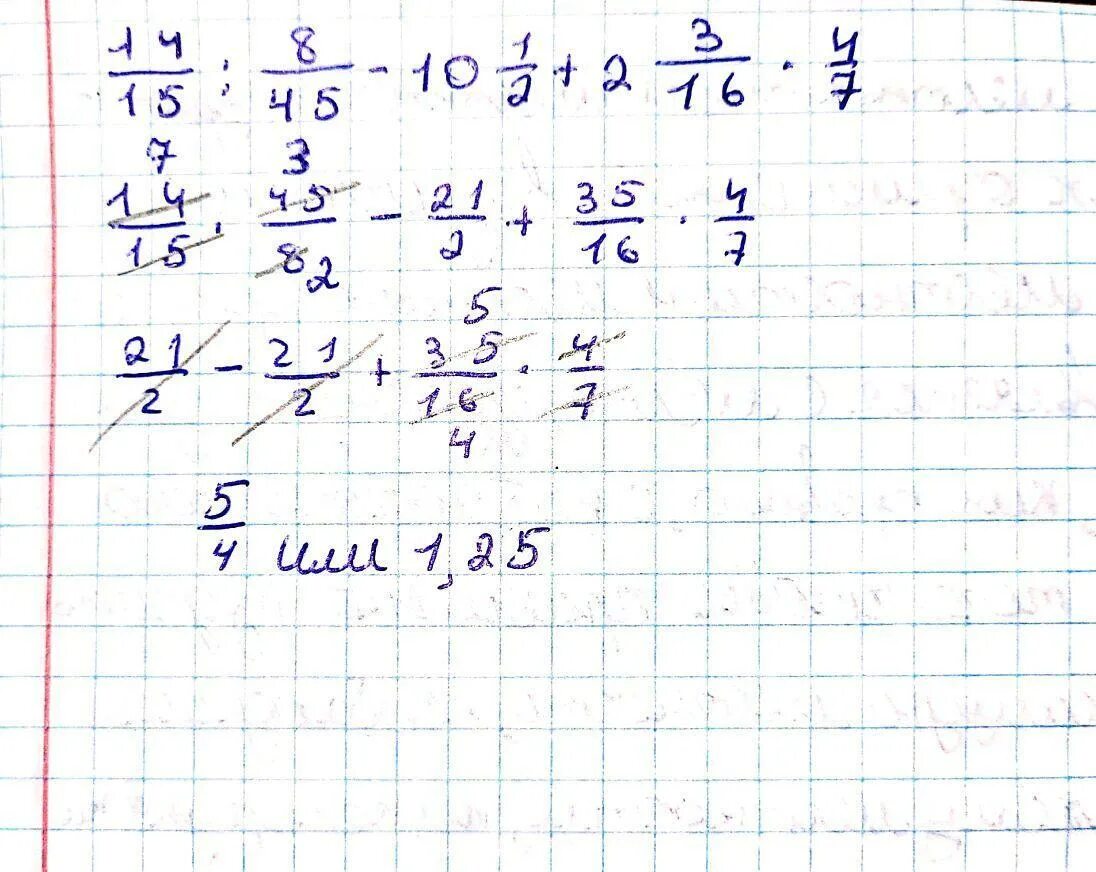 14/15 : 8/45 - 10 1/2 + 2 3/16 · 4/7
7 3
14/15 · 45/8 2 - 21/2 + 35/16 · 4/7
5
21/2 - 21/2 + 35/16 · 4/7
4
5/4 или 1,25